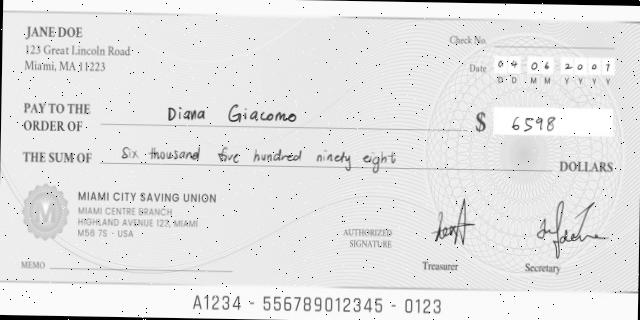 JANE DOE
123 Great Lincoln Road
Miami, MA 11223
Check No.
Date 04 06 2001
D D M M Y Y Y Y
PAY TO THE ORDER OF Diana Giacomo $ 6598
THE SUM OF Six thousand five hundred ninety eight DOLLARS
M
MIAMI CITY SAVING UNION
MIAMI CENTRE BRANCH
HIGHLAND AVENUE 122, MIAMI
M56 7S - USA
AUTHORIZED
SIGNATURE
Treasurer
Secretary
MEMO
A1234 - 556789012345 - 0123